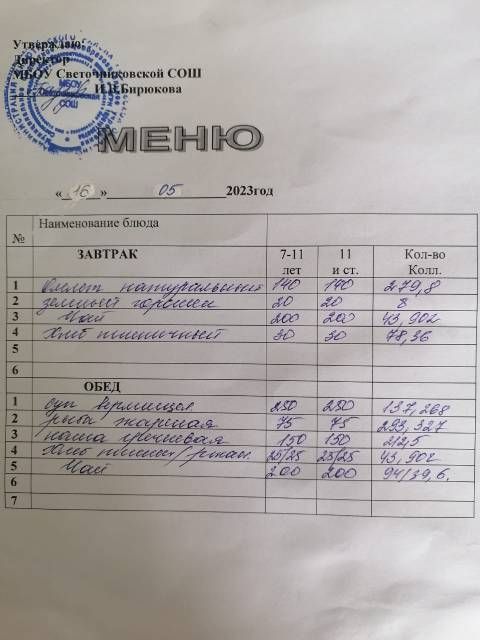 Утверждаю:
Директор
МБОУ Светочниковской СОШ
И.П.Бирюкова
МБОУ
СОШ
МЕНЮ
«16» 05 2023год
№ Наименование блюда
ЗАВТРАК 7-11 лет 11 и ст. Кол-во Колл.
1 Омлет натуральный 140 140 279,8
2 зеленый горошек 20 20 8
3 Чай 200 200 43,902
4 Хлеб пшеничный 30 30 78,36
5
6
ОБЕД
1 суп вермишел 250 250 137,268
2 рыба жареная 75 75 293,327
3 каша гречневая 150 150 212,5
4 Хлеб пшенич/ржан. 25/25 25/25 43,902
5 Чай 200 200 94/39,6.
6
7